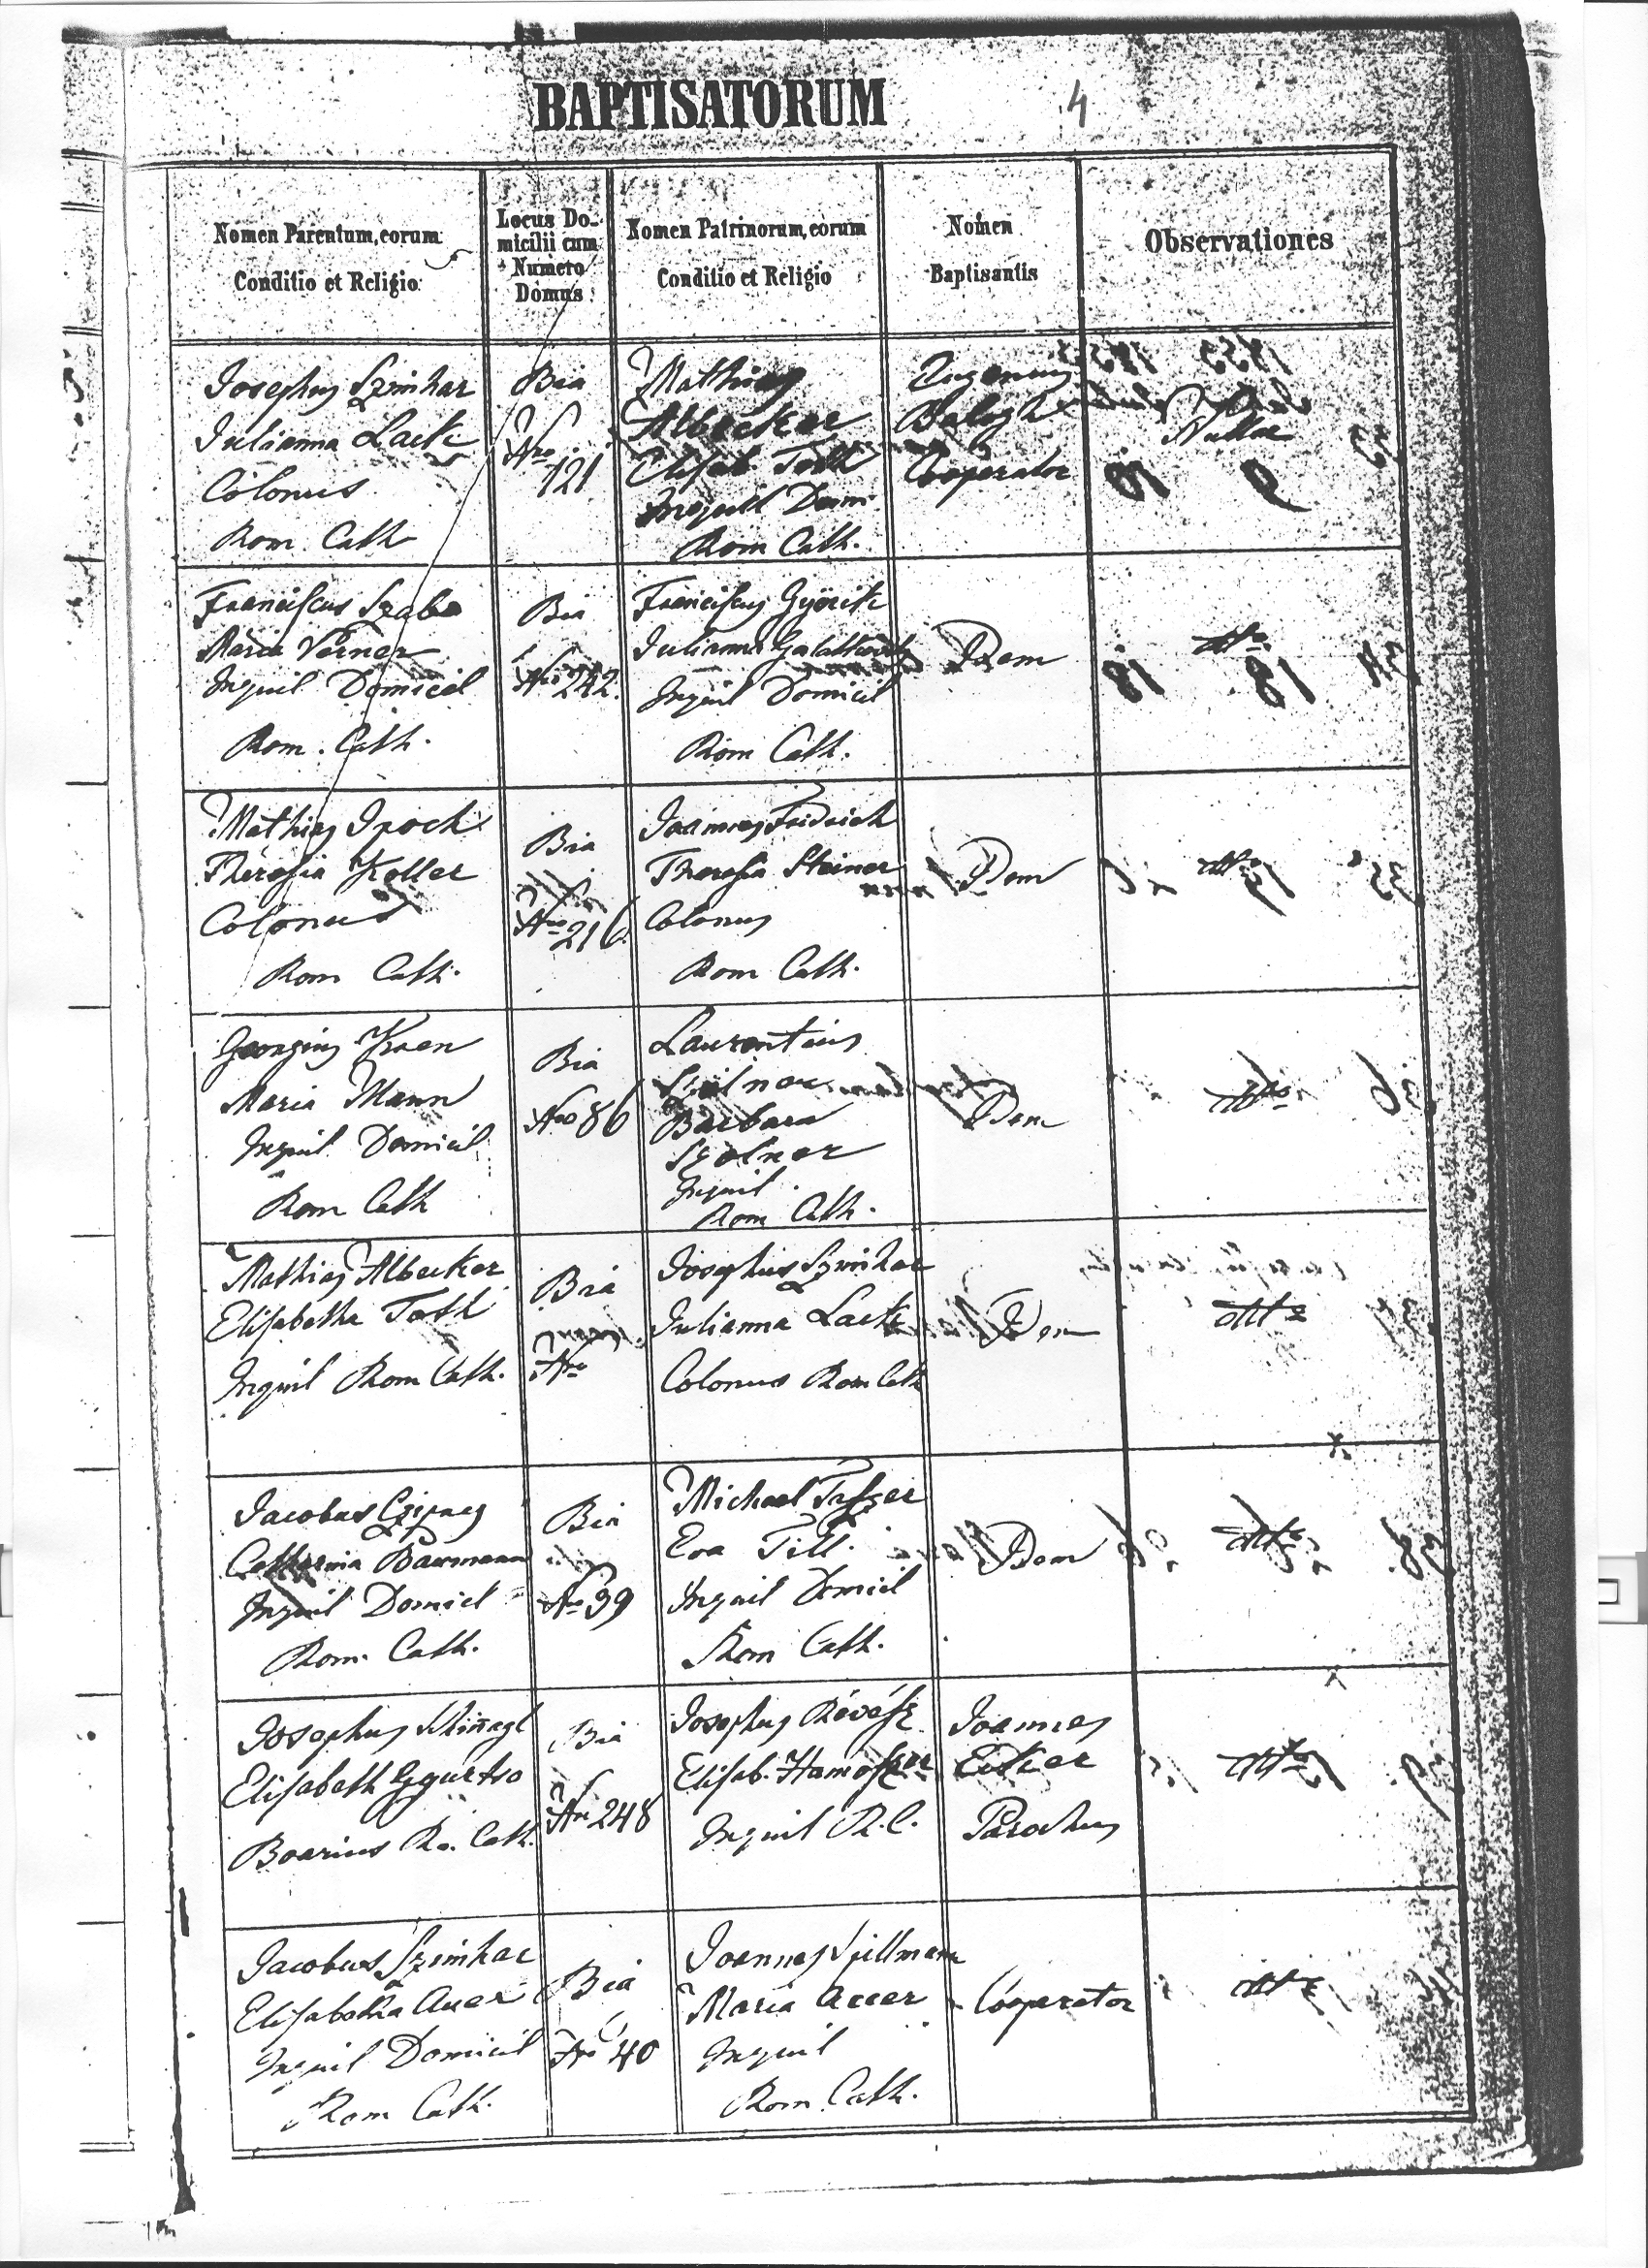 BAPTISATORUM
4
Nomen Parentum, eorum
Conditio et Religio
Locus Do-
micilii cum
Numero
Domus
Nomen Patrinorum, eorum
Conditio et Religio
Nomen
Baptisantis
Observationes
Josephus Szinhar
Julianna Lack
Colonus
Rom Cath
Bia
Nro
121
Mathias
Albecker
Elisab. Toth
Inquil Dom
Rom Cath.
Eugenius
Balogh
Cooperator
Nullae
Franciscus Szabo
Maria Verner
Inquil Domicil
Rom. Cath.
Bia
Nro 242.
Franciscus Györik
Julianna
Inquil Domicil
Rom Cath.
Idem
dtto
Mathias Ipoch
Theresia Koller
Colonus
Rom Cath.
Bia
Nro 216.
Joannes Fridrich
Theresia Steiner
Colonus
Rom Cath.
Idem
dtto
Georgius
Maria Mann
Inquil Domicil
Rom Cath
Bia
Nro 86
Laurentius
Barbara
Szolner
Inquil.
Rom Cath.
Idem
dtto
Mathias Albecker
Elisabetha Toth
Inquil Rom Cath.
Bia
Nro
Josephus Szinhar
Julianna Lack
Colonus Rom Cath
Idem
dtto
Jacobus
Catharina Baumann
Inquil Domicil
Rom. Cath.
Bia
Nro 39
Michael
Eva Till.
Inquil Domicil
Rom Cath.
Idem
dtto
Josephus
Elisabeth
Boarius Ro. Cath.
Bia
Nro 248
Josephus Révész
Elisab.
Inquil R. C.
Joannes
Parochus
dtto
Jacobus Szinhar
Elisabetha Auer
Inquil Domicil
Rom Cath.
Bia
Nro 40
Joannes Spillmann
Maria Auer
Inquil
Rom Cath.
Cooperator
dtto